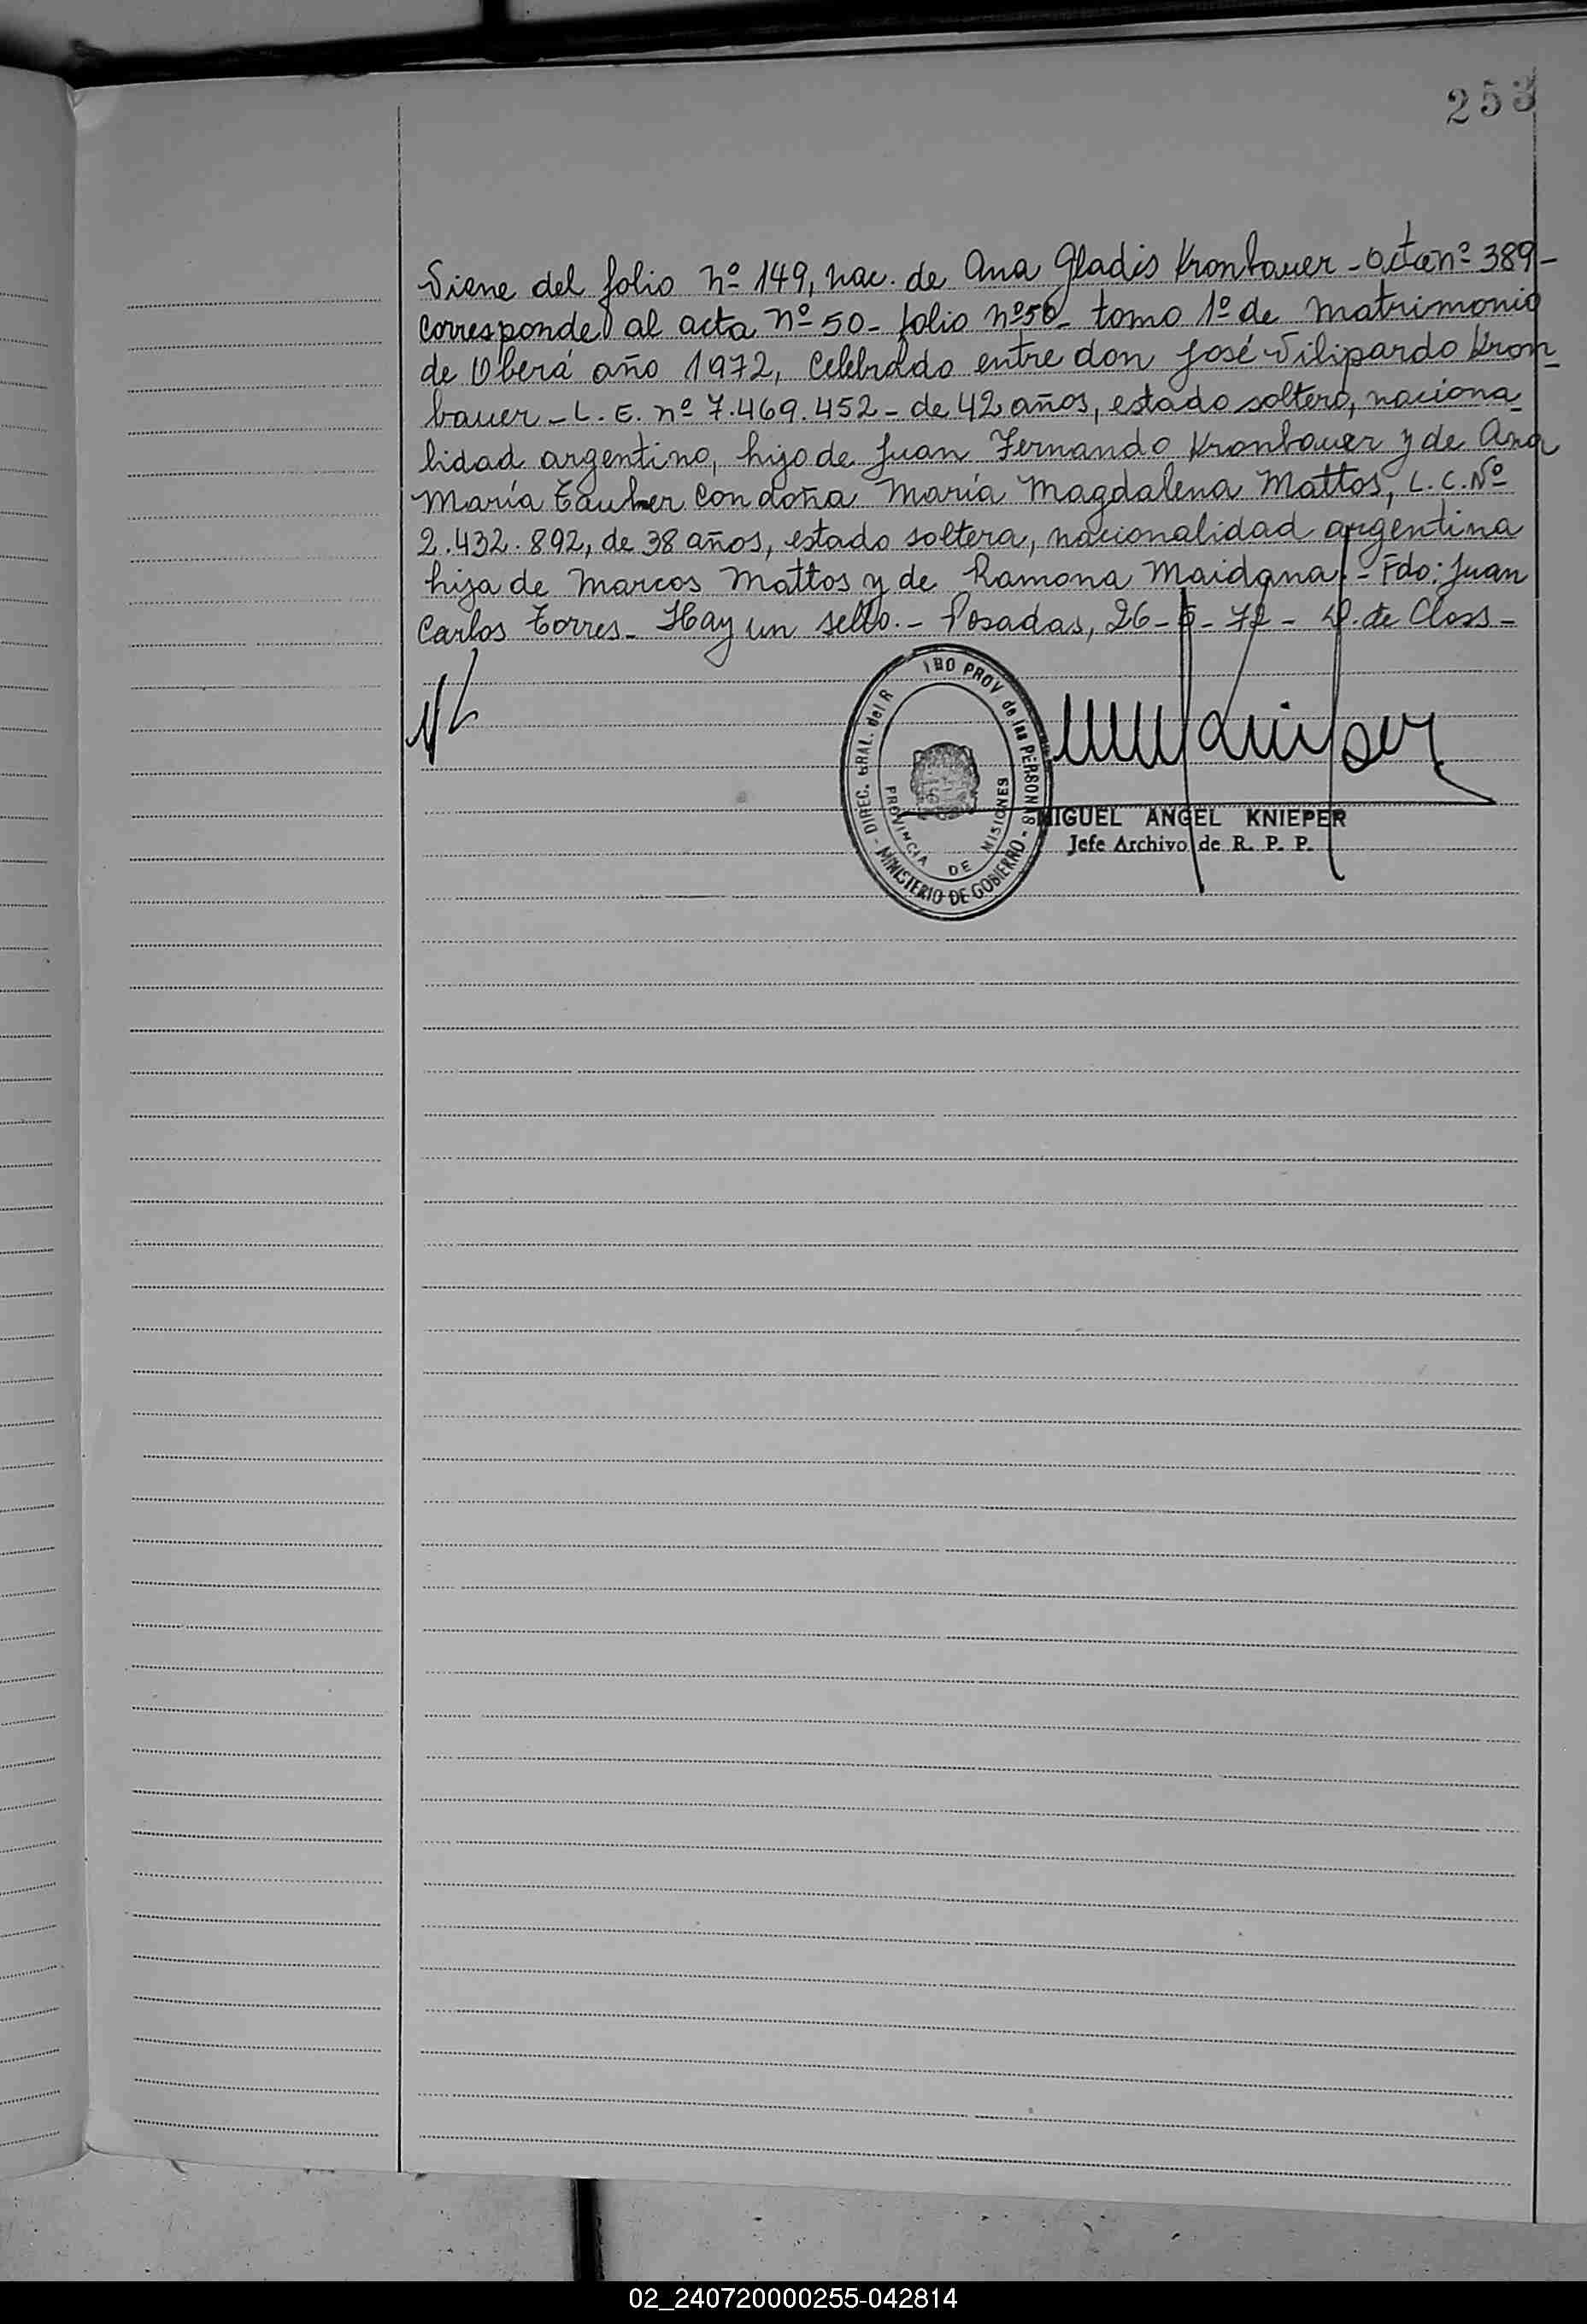 253
Viene del folio nº 149, nac. de Ana Gladis Kronbauer - acta nº 389 -
Corresponde al acta nº 50 - folio nº 50 - tomo 1º de matrimonio
de Oberá año 1972, Celebrado entre don José Vilipardo Kron-
bauer - L. E. nº 7.469.452 - de 42 años, estado soltero, naciona-
lidad argentino, hijo de Juan Fernando Kronbauer y de Ana
María Tauber con doña María Magdalena Mattos, L. C. Nº
2.432.892, de 38 años, estado soltera, nacionalidad argentina
hija de Marcos Mattos y de Ramona Maidana. - Fdo: Juan
Carlos Torres - Hay un sello. - Posadas, 26 - 5 - 72 - D. de Closs -
DIREC. GRAL. del R IBO PROV de las PERSONAS - MINISTERIO DE GOBIERNO -
PROVINCIA DE MISIONES
MIGUEL ANGEL KNIEPER
Jefe Archivo de R. P. P.
02_240720000255-042814